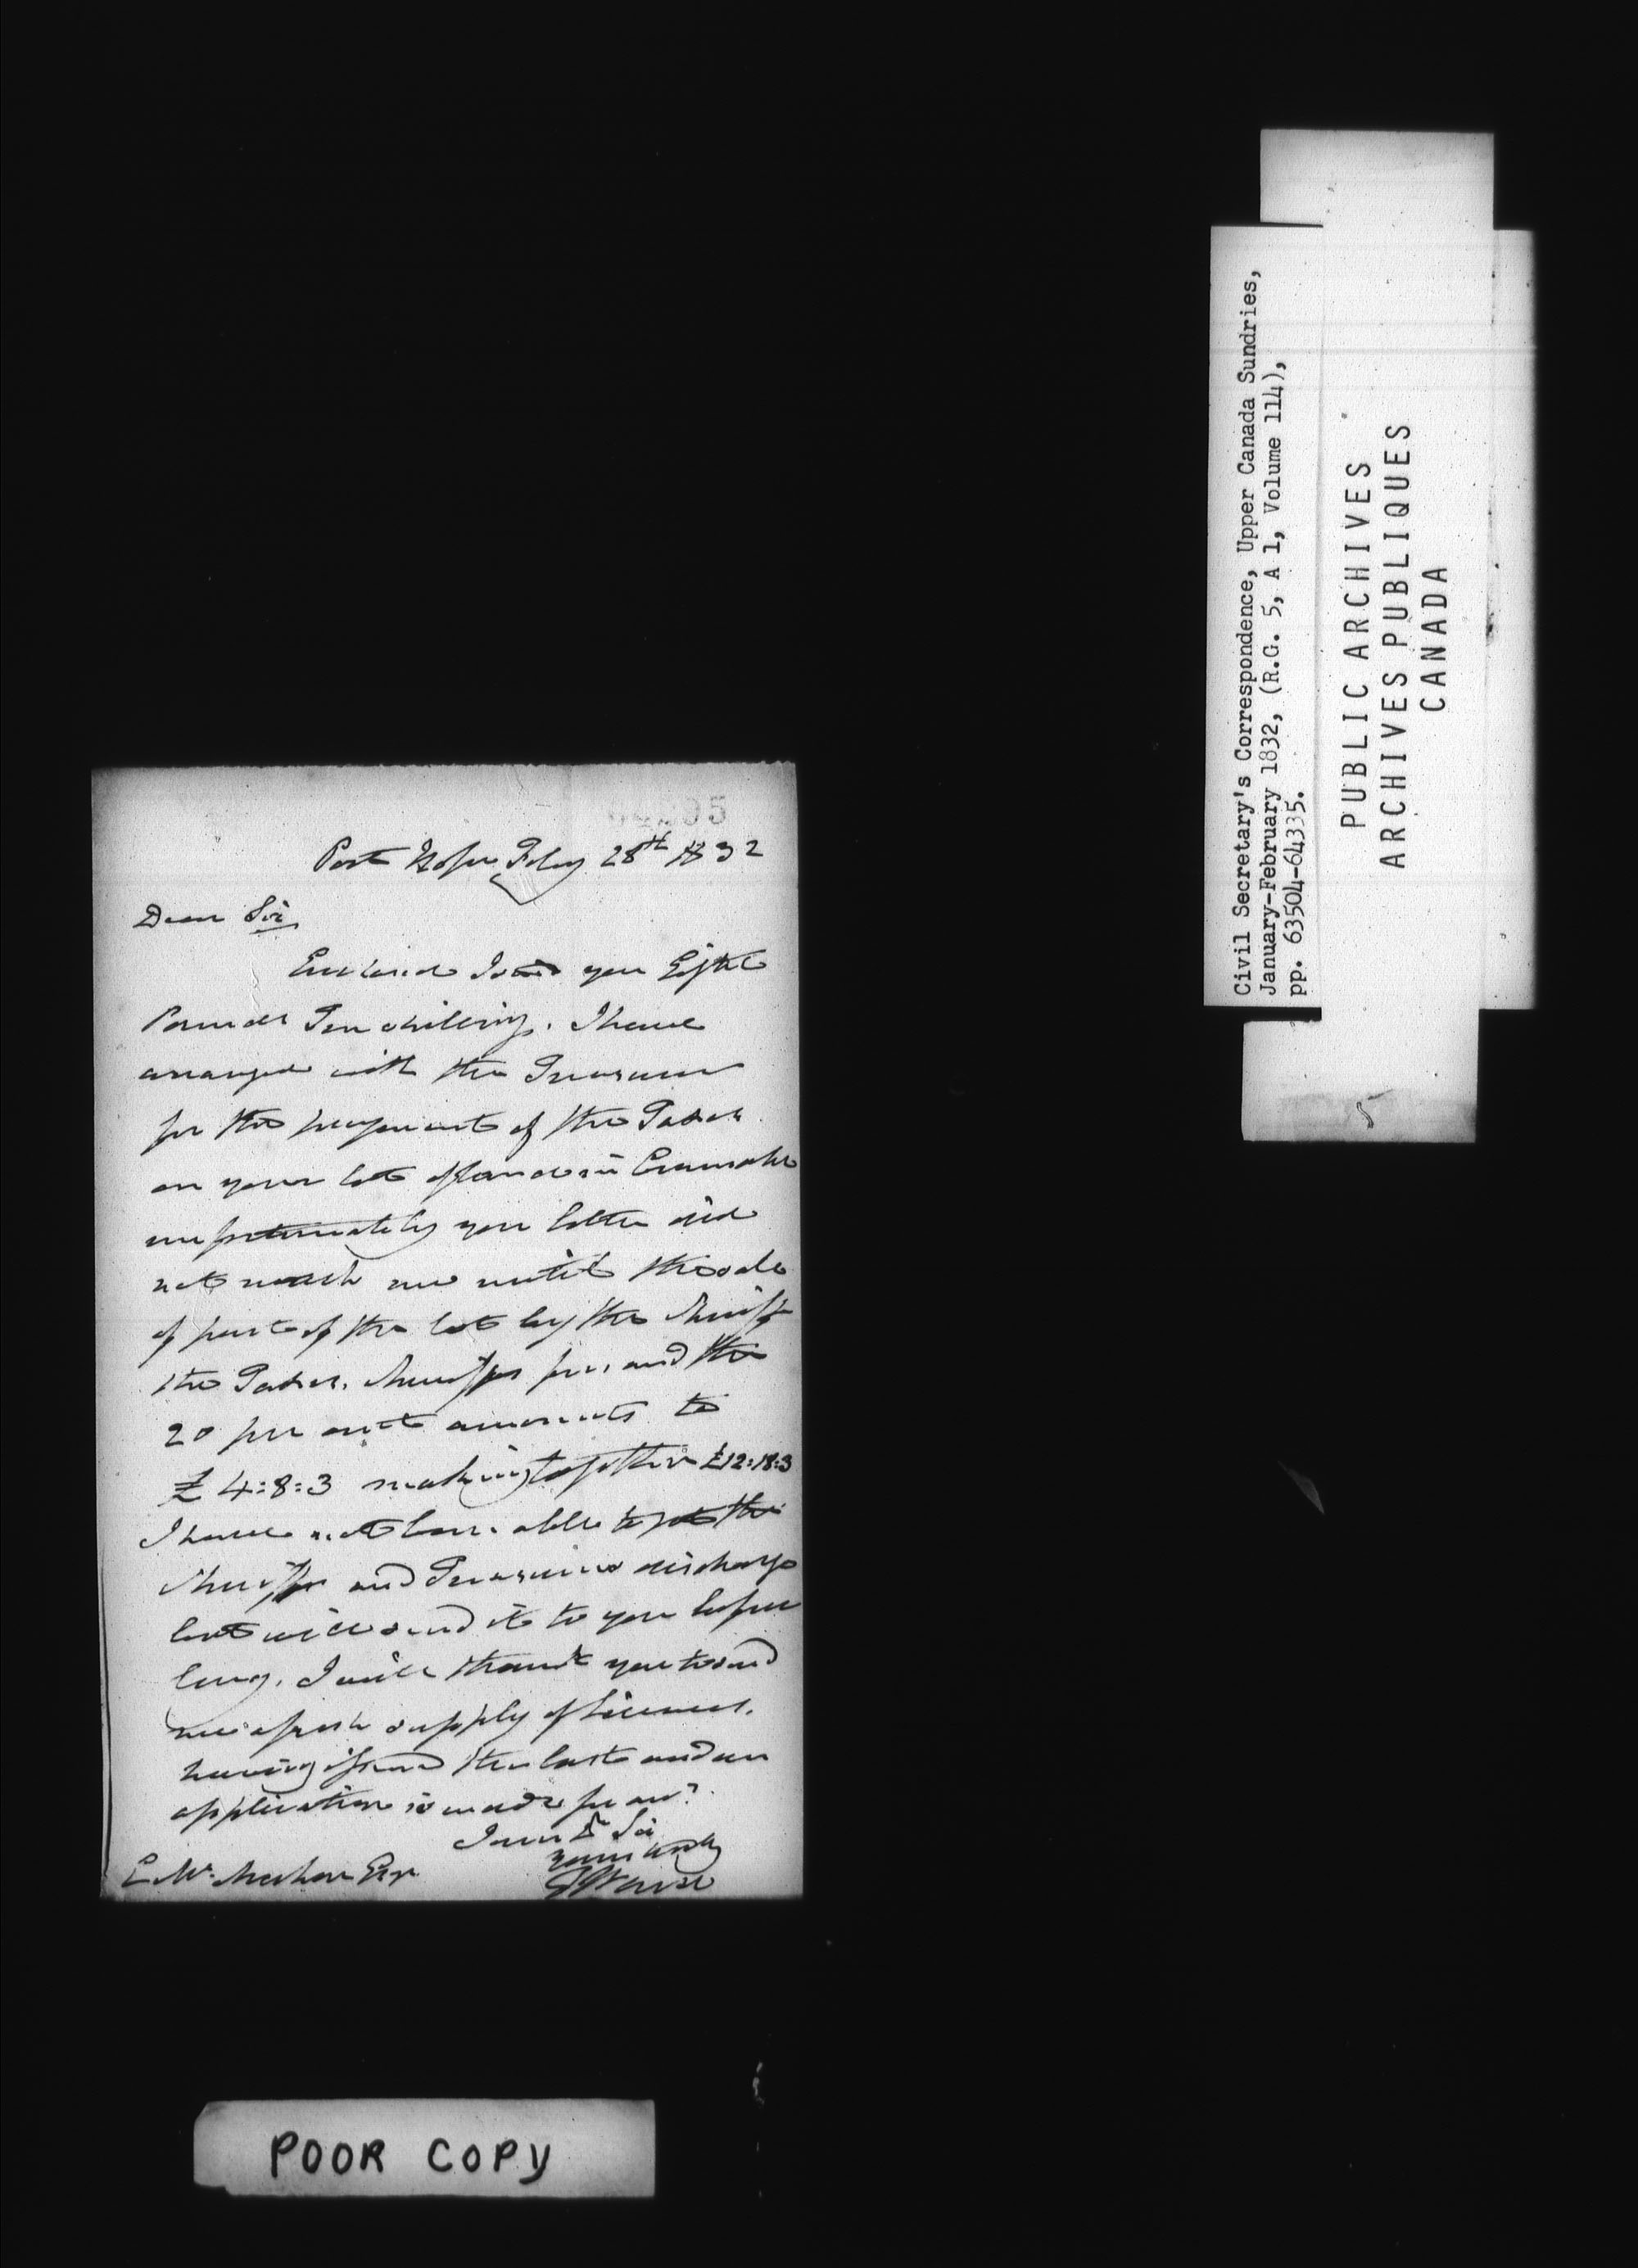 Port Hope Feby 28th 1832
Dear Sir
Enclosed I send you Eight
Pounds Ten shillings. I have
arranged with the Treasurer
for the payment of the Taxes
on your lot of land in Cramahe
unfortunately your letter did
not reach me until the sale
of part of the lot by the Sheriff
the Taxes, Sheriffs fees and the
20 per cent amounts to
£ 4:8:3 making together £12:18:3
I have not been able to get the
Sheriffs and Treasurers discharge
but will send it to you before
long. I will thank you to send
me a fresh supply of Licenses,
having issued the last and an
application is made for one.
I am Dr Sir
yours truly
E McMahon Esqr
Civil Secretary's Correspondence, Upper Canada Sundries,
January-February 1832, (R.G. 5, A 1, Volume 114),
pp. 63504-64335.
PUBLIC ARCHIVES
ARCHIVES PUBLIQUES
CANADA
5
POOR COPY